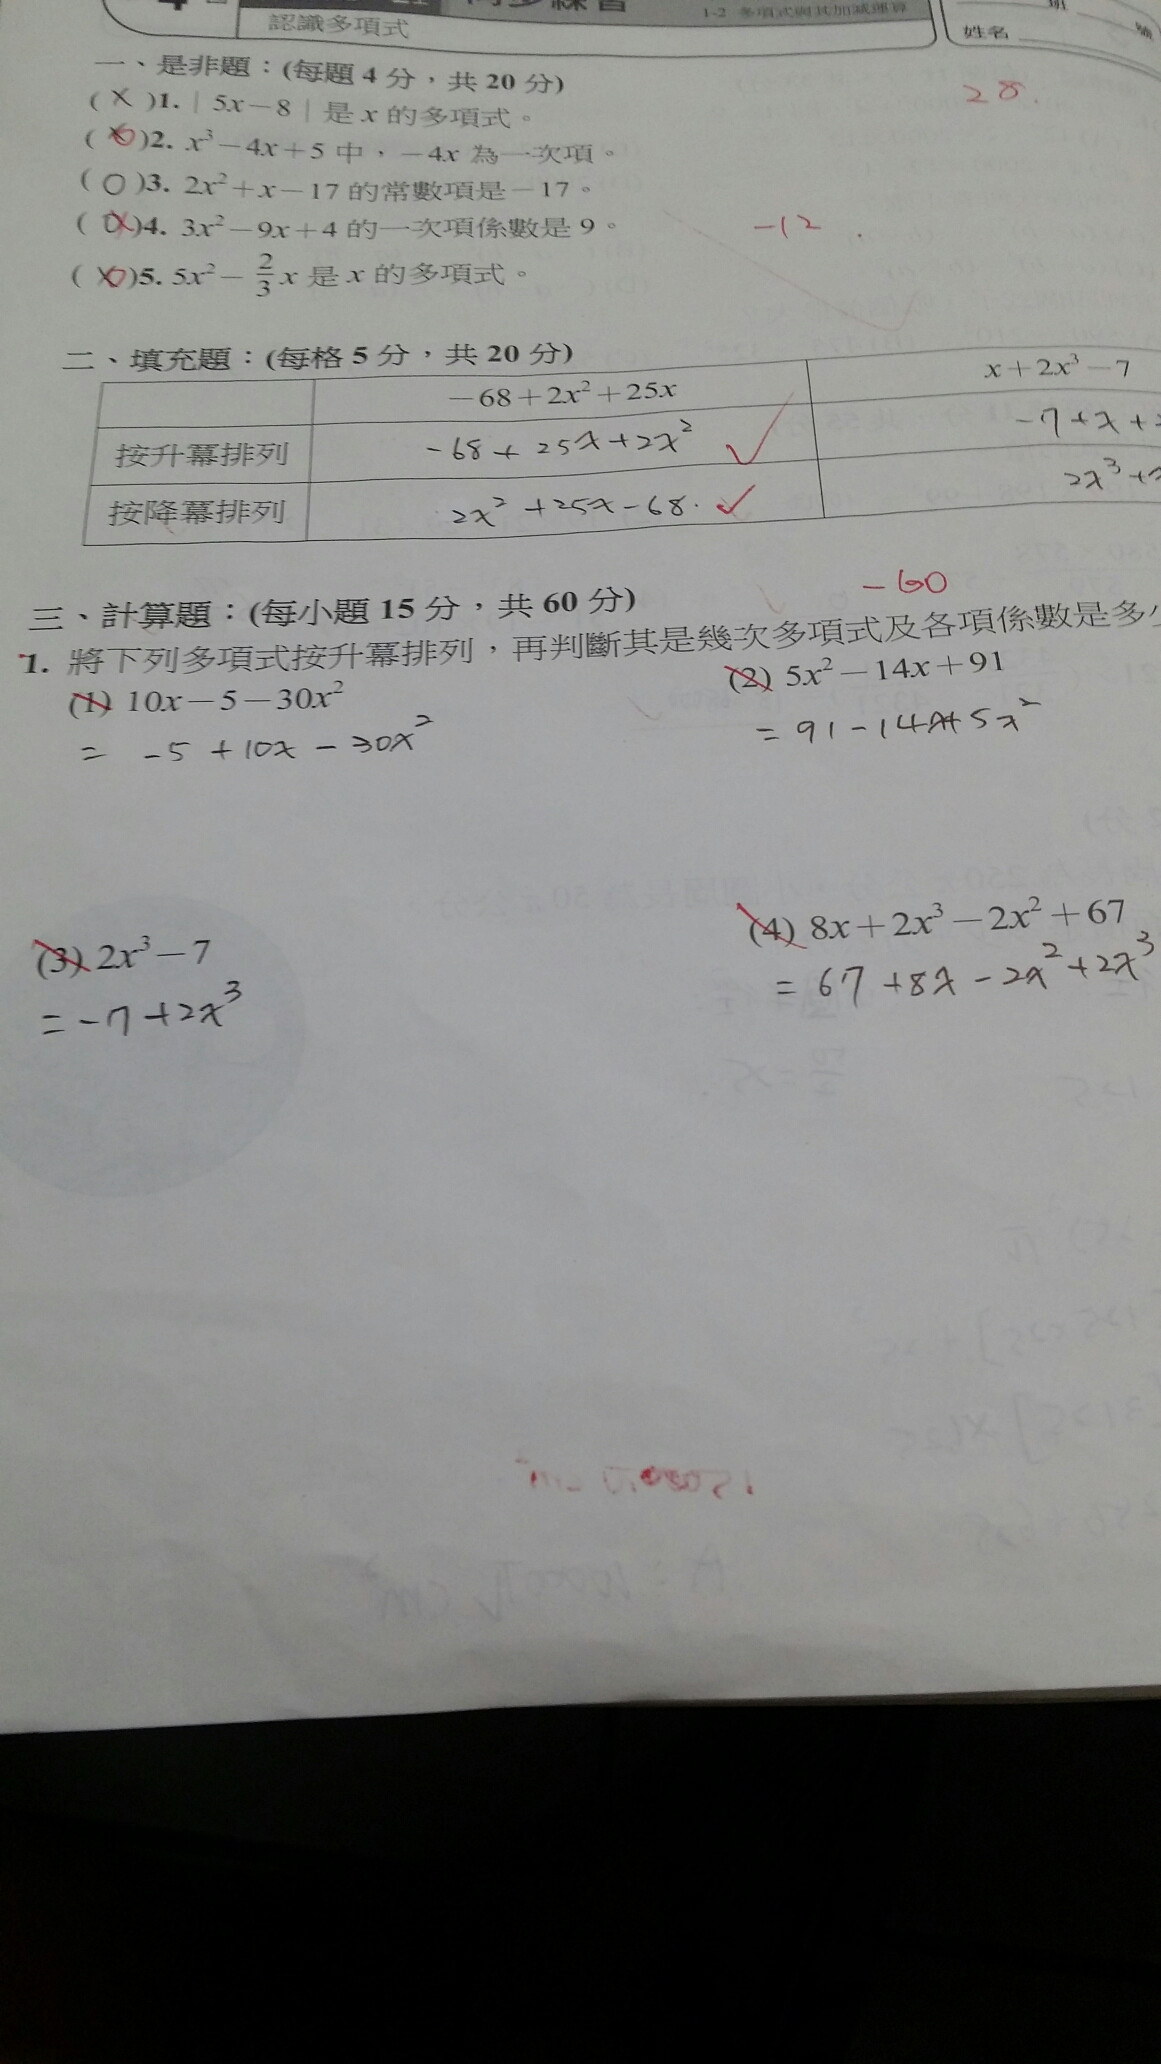 認識多項式
1-2 多項式與其加減運算
姓名
號
28.
一、是非題：(每題 4 分，共 20 分)
( X )1. | 5x－8 | 是 x 的多項式。
( O )2. x³－4x＋5 中，－4x 為一次項。
( O )3. 2x²＋x－17 的常數項是－17。
( X )4. 3x²－9x＋4 的一次項係數是 9。
-12
( O )5. 5x²－2/3 x 是 x 的多項式。
二、填充題：(每格 5 分，共 20 分)
－68＋2x²＋25x x＋2x³－7
按升冪排列 -68+25x+2x² -7+x+
按降冪排列 2x²+25x-68. 2x³+
-60
三、計算題：(每小題 15 分，共 60 分)
1. 將下列多項式按升冪排列，再判斷其是幾次多項式及各項係數是多
(1) 10x－5－30x² (2) 5x²－14x＋91
= -5+10x-30x² = 91-14x+5x²
(3) 2x³－7 (4) 8x＋2x³－2x²＋67
= -7+2x³ = 67+8x-2x²+2x³